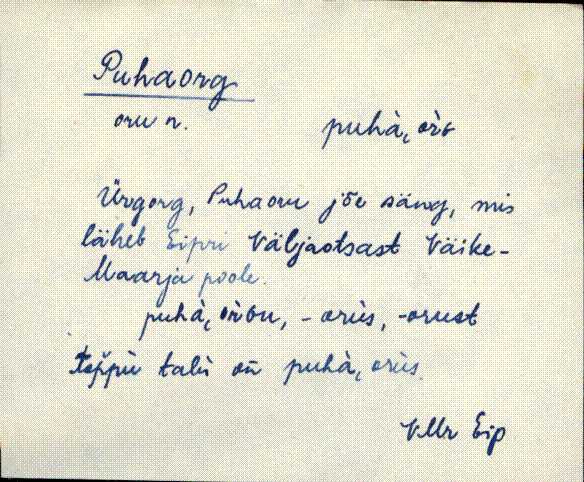 Puhaorg
oru n.
puhà, òrG
Ürgorg, Puhaoru jõe säng, mis
läheb Eipri Väljaotsast Väike-
Maarja poole.
puhà, òrGu, -orùs, -orust
talù oñ puhà, orùs.
VMr Eip